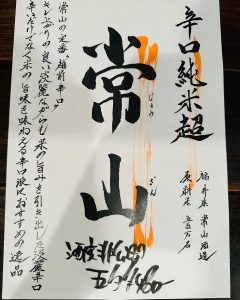 辛口純米超
福井県 常山酒造
原料米 五百万石
常山
じょうざん
常山の定番、越前辛口
キレ上がりの良い淡麗ながらも米の旨みを引き出した淡麗辛口
辛いだけでなく米の旨味を味わえる辛口派におすすめの逸品